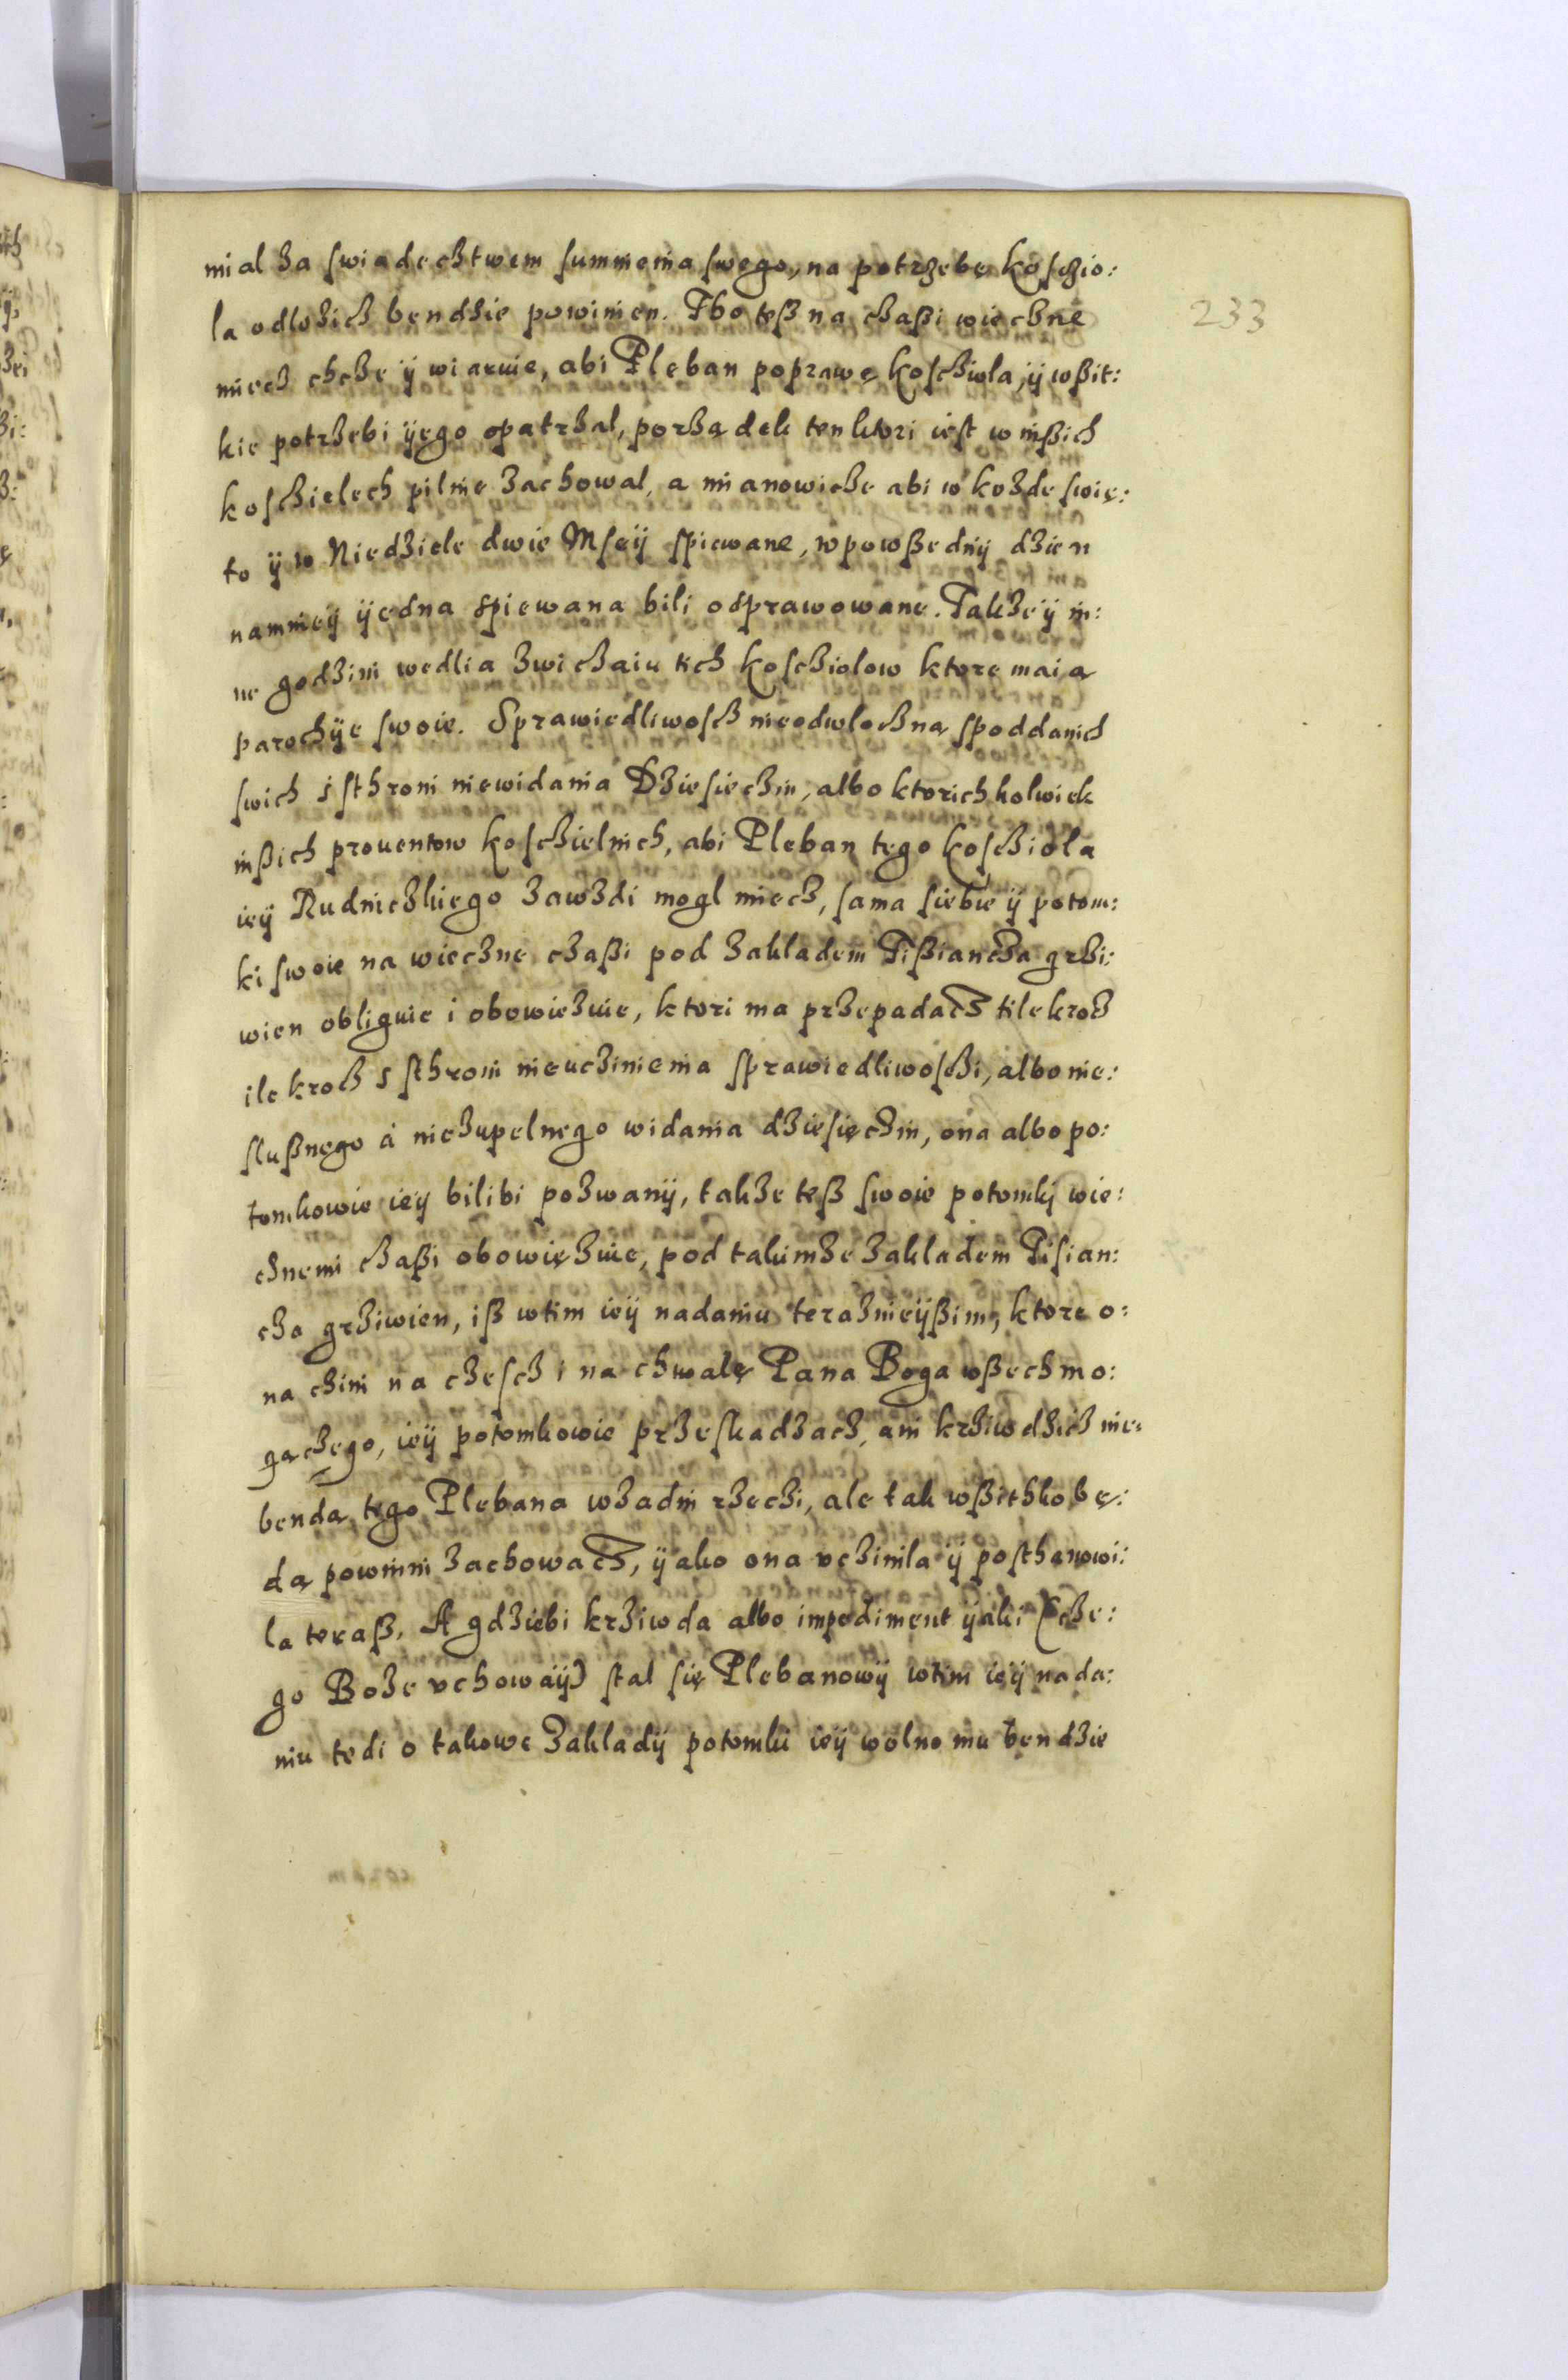 mial za swiadecztwem summenia swego, na potrzebę kosczio:
la odlozicz bendzie powinien. Tho tesz na czaszi wieczne
miecz chcze ÿ wiaruie, abi Pleban poprawę koscziola, ÿ wszit:
kie potrzebi ÿego opatrzal, porządek ten ktori iest w inszich
kosczielech pilnie zachowal, a mianowicze abi w kozde swię:
to ÿ w Niedziele dwie Mszÿ spiewane, w powszednÿ dzien
namnieÿ ÿedna spiewana bili odprawowane. Takze ÿ in:
ne godzini wedlia zwiczaiu tich koscziolow ktore maią
parochÿe swoie. Sprawiedliwoscz nieodwloczną s poddanich
swich s sthroni niewidania Dziesieczin, albo ktorich kolwiek
inszich prouentow kosczielnich, abi Pleban tego koscziola
ieÿ Rudniczkiego zawzdi mogl miecz, sama siebie ÿ potom:
ki swoie na wieczne czaszi pod zakladem Tisziancza grzi:
wien obliguie i obowiezuie, ktori ma przepadacz tilekrocz
ilekrocz s sthroni nieuczinienia sprawiedliwosczi, albo nie:
slusznego a niezupelnego widania dziesięczin, ona albo po:
tomkowie ieÿ bilibi pozwanÿ, takze tesz swoie potomki wie:
cznemi czaszi obowięzuie, pod takimze zakladem Tisian:
cza grziwien, isz w tim ieÿ nadaniu teraznieÿszim, ktore o:
na czini na czescz i na chwalę Pana Boga wszechmo:
gączego, ieÿ potomkowie przeskadzacz, ani krziwdzicz nie:
bendą tego Plebana w zadni rzeczi, ale tak wszithko bę:
dą powinni zachowacz, ÿako ona vczinila ÿ posthanowi:
la terasz. A gdziebi krziwda albo impediment ÿaki (cze:
go Boze vchowaÿ) stal się Plebanowÿ w tim ieÿ nada:
niu tedi o takowe zakladÿ potomki ieÿ wolno mu bendzie
233